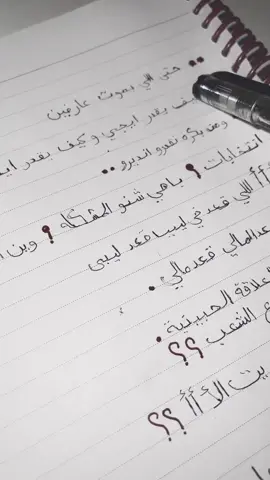 حتى اللي يموت عارفين
كيف يقدر ايجبي وكيف يقدر
ومن بكره نقدرو انديرو
انتخابات ؟ باهي شنو المشكله ؟ وين
أأأ اللي قعد في ليبيا قعد ليبي
المالي قعد مالي .
علاقة الحبيبية .
الشعب ؟؟
يت الأ أ أ ؟؟